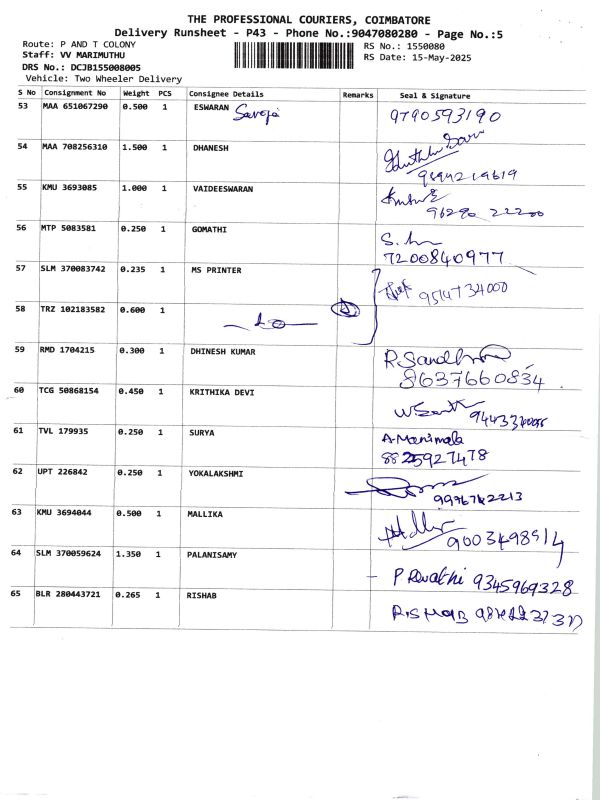 THE PROFESSIONAL COURIERS, COIMBATORE
Delivery Runsheet - P43 - Phone No.:9047080280 - Page No.:5
Route: P AND T COLONY
RS No.: 1550080
Staff: VV MARIMUTHU
RS Date: 15-May-2025
DRS No.: DCJB155008005
Vehicle: Two Wheeler Delivery
S No Consignment No Weight PCS Consignee Details Remarks Seal & Signature
53 MAA 651067290 0.500 1 ESWARAN 9790593190
54 MAA 708256310 1.500 1 DHANESH
55 KMU 3693085 1.000 1 VAIDEESWARAN
96290 22200
56 MTP 5083581 0.250 1 GOMATHI
7200840977
57 SLM 370083742 0.235 1 MS PRINTER
9514734000
58 TRZ 102183582 0.600 1
59 RMD 1704215 0.300 1 DHINESH KUMAR
8637660834
60 TCG 50868154 0.450 1 KRITHIKA DEVI
61 TVL 179935 0.250 1 SURYA A. Manimala
8825927478
62 UPT 226842 0.250 1 YOKALAKSHMI
63 KMU 3694044 0.500 1 MALLIKA
9003498514
64 SLM 370059624 1.350 1 PALANISAMY
9345969328
65 BLR 280443721 0.265 1 RISHAB
RISHAB